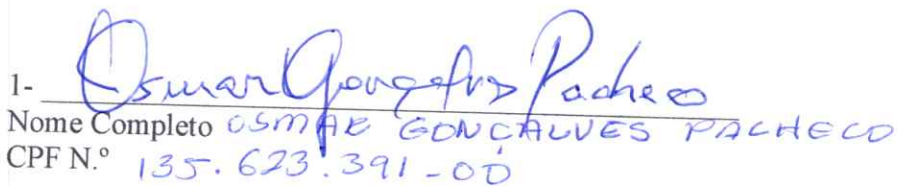 1- Osmar Gonçalves Pacheco
Nome Completo OSMAR GONÇALVES PACHECO
CPF N.º 135.623.391-00